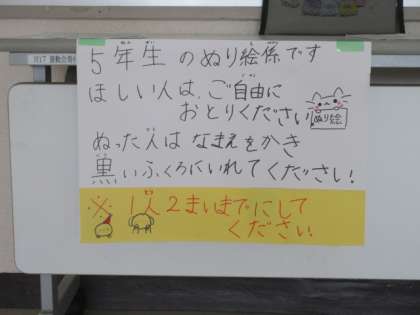 5年生のぬり絵係です
ほしい人は、ご自由に
おとりください!
ぬり絵
ぬった人はなまえをかき
黒いふくろにいれてください!
※1人2まいまでにして
ください